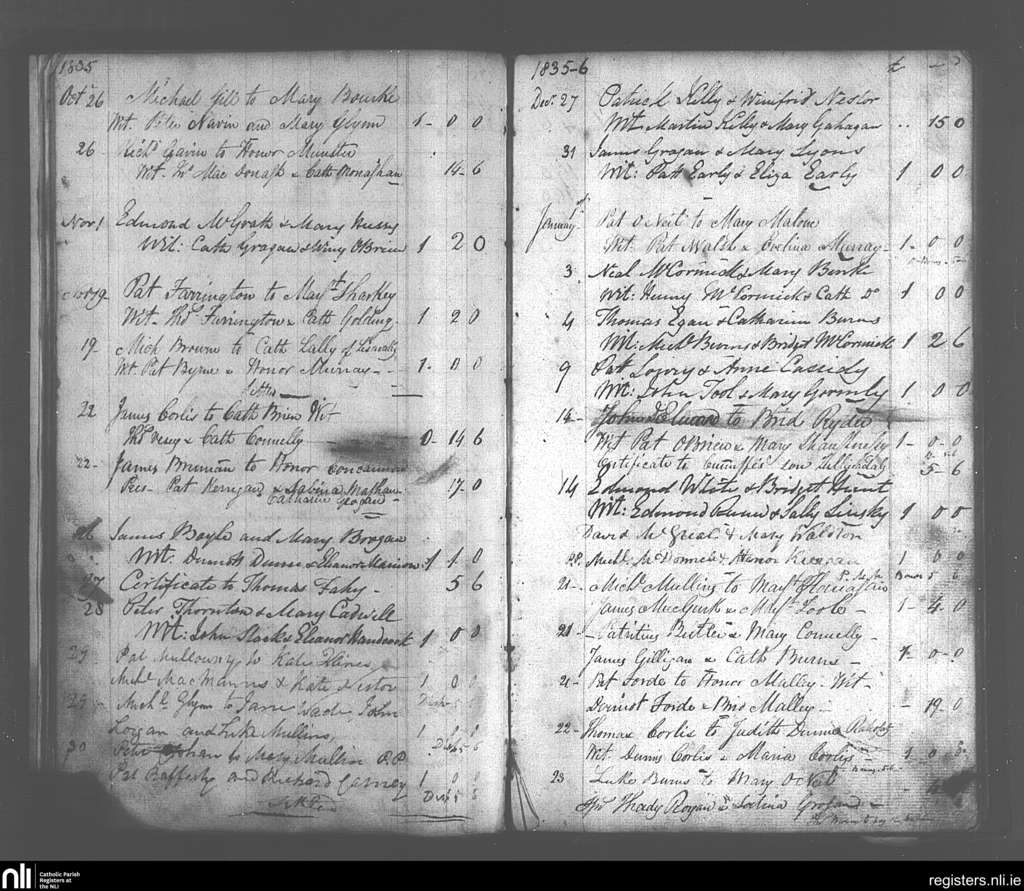 1835
Oct 26 Michael Gill to Mary Bourke
Wit. Peter Navin and Mary Glynn 1 - 0 0
26 Rich Gavin to Honor Munster
Wit. Ths Mac Donagh & Cath Monaghan 14 - 6
Nov 1 Edmond McGrath & Mary
Wit: Cath Grogan & Winy O Brien 1 2 0
Pat Farrington to Mayt Sharkey
Wit Ths Farrington & Cath Golding 1 2 0
19 Mich Browne to Cath Lally of
Wt. Pat Byrne & Honor Murray - - 1 - 0 0
22 James Corlis to Cath Brien Wit
Ths & Cath Connelly 0 - 14 6
22 - James to Honor Concannon
Pres - Pat Kerrigan & Sabina 17 - 0
Catharine Grogan
26 James Boyle and Mary Brogan
Wit: Dunn & Eleanor 1 1 0
27 Certificate to Thomas Fahy - 5 6
28 Peter Thornton & Mary Cadwell
Wit: John Slack & Eleanor Handcock 1 0 0
29 Pat Mullowny to Kate Hines
Michl MacManus & Kate 1 0
29 - Michl Glynn to Jane Wade, John
Logan and Luke Mullins, 1
30 Peter to Mary Mullin P.P.
Pat Rafferty and Richard Carney 1 0
1835-6 £
Decr 27 Patrick Kelly & Winifrid Nestor
Wit. Martin Kelly & Mary Gahagan .. 15 0
31 James Grogan & Mary Lyons
Wit: Patt Early & Eliza Early 1 0 0
January Pat O Neil to Mary Malone
Wit. Pat Walsh & Evelina Murray - 1 - 0 - 0
3 Neal McCormick & Mary Burke
Wit: Henry McCormick & Cath Do 1 0 0
4 Thomas Egan & Catharine Burns
Wit: Michl Burns & Bridget McCormick 1 2 6
9 Pat Lowry & Anne Cassidy
Wit: John Tool & Mary Gromly 1 0 0
14 - John to Brid Ryder
Wit Pat OBrien & Mary 1 - 0 - 0
Certificate to 5 - 6
14 Edmond White & Bridget Hunt
Wit: Edmond & Sally Linsky 1 0 0
David McGreal & Mary Waldron
Michl McDonnell & Honor Keegan 1 0 0
21 - Michl Mullins to Mayt
James MacGurk & Mayt Toole - 1 - 4 0
21 - Patritius Butler & Mary Connelly -
James Gilligan & Cath Burns - 1 - 0 - 0
21 - Pat Forde to Honor Malley - Wit -
Dermot Forde & Brid Malley - - 19 0
22 - Thomas Corlis to Judith Dunne
Wit. Dennis Corlis & Maria Corlis - 1 0
23 Luke Burns to Mary O Neil
Thady Rogan & Sabina Grogan -
nli Catholic Parish
Registers at
the NLI
registers.nli.ie